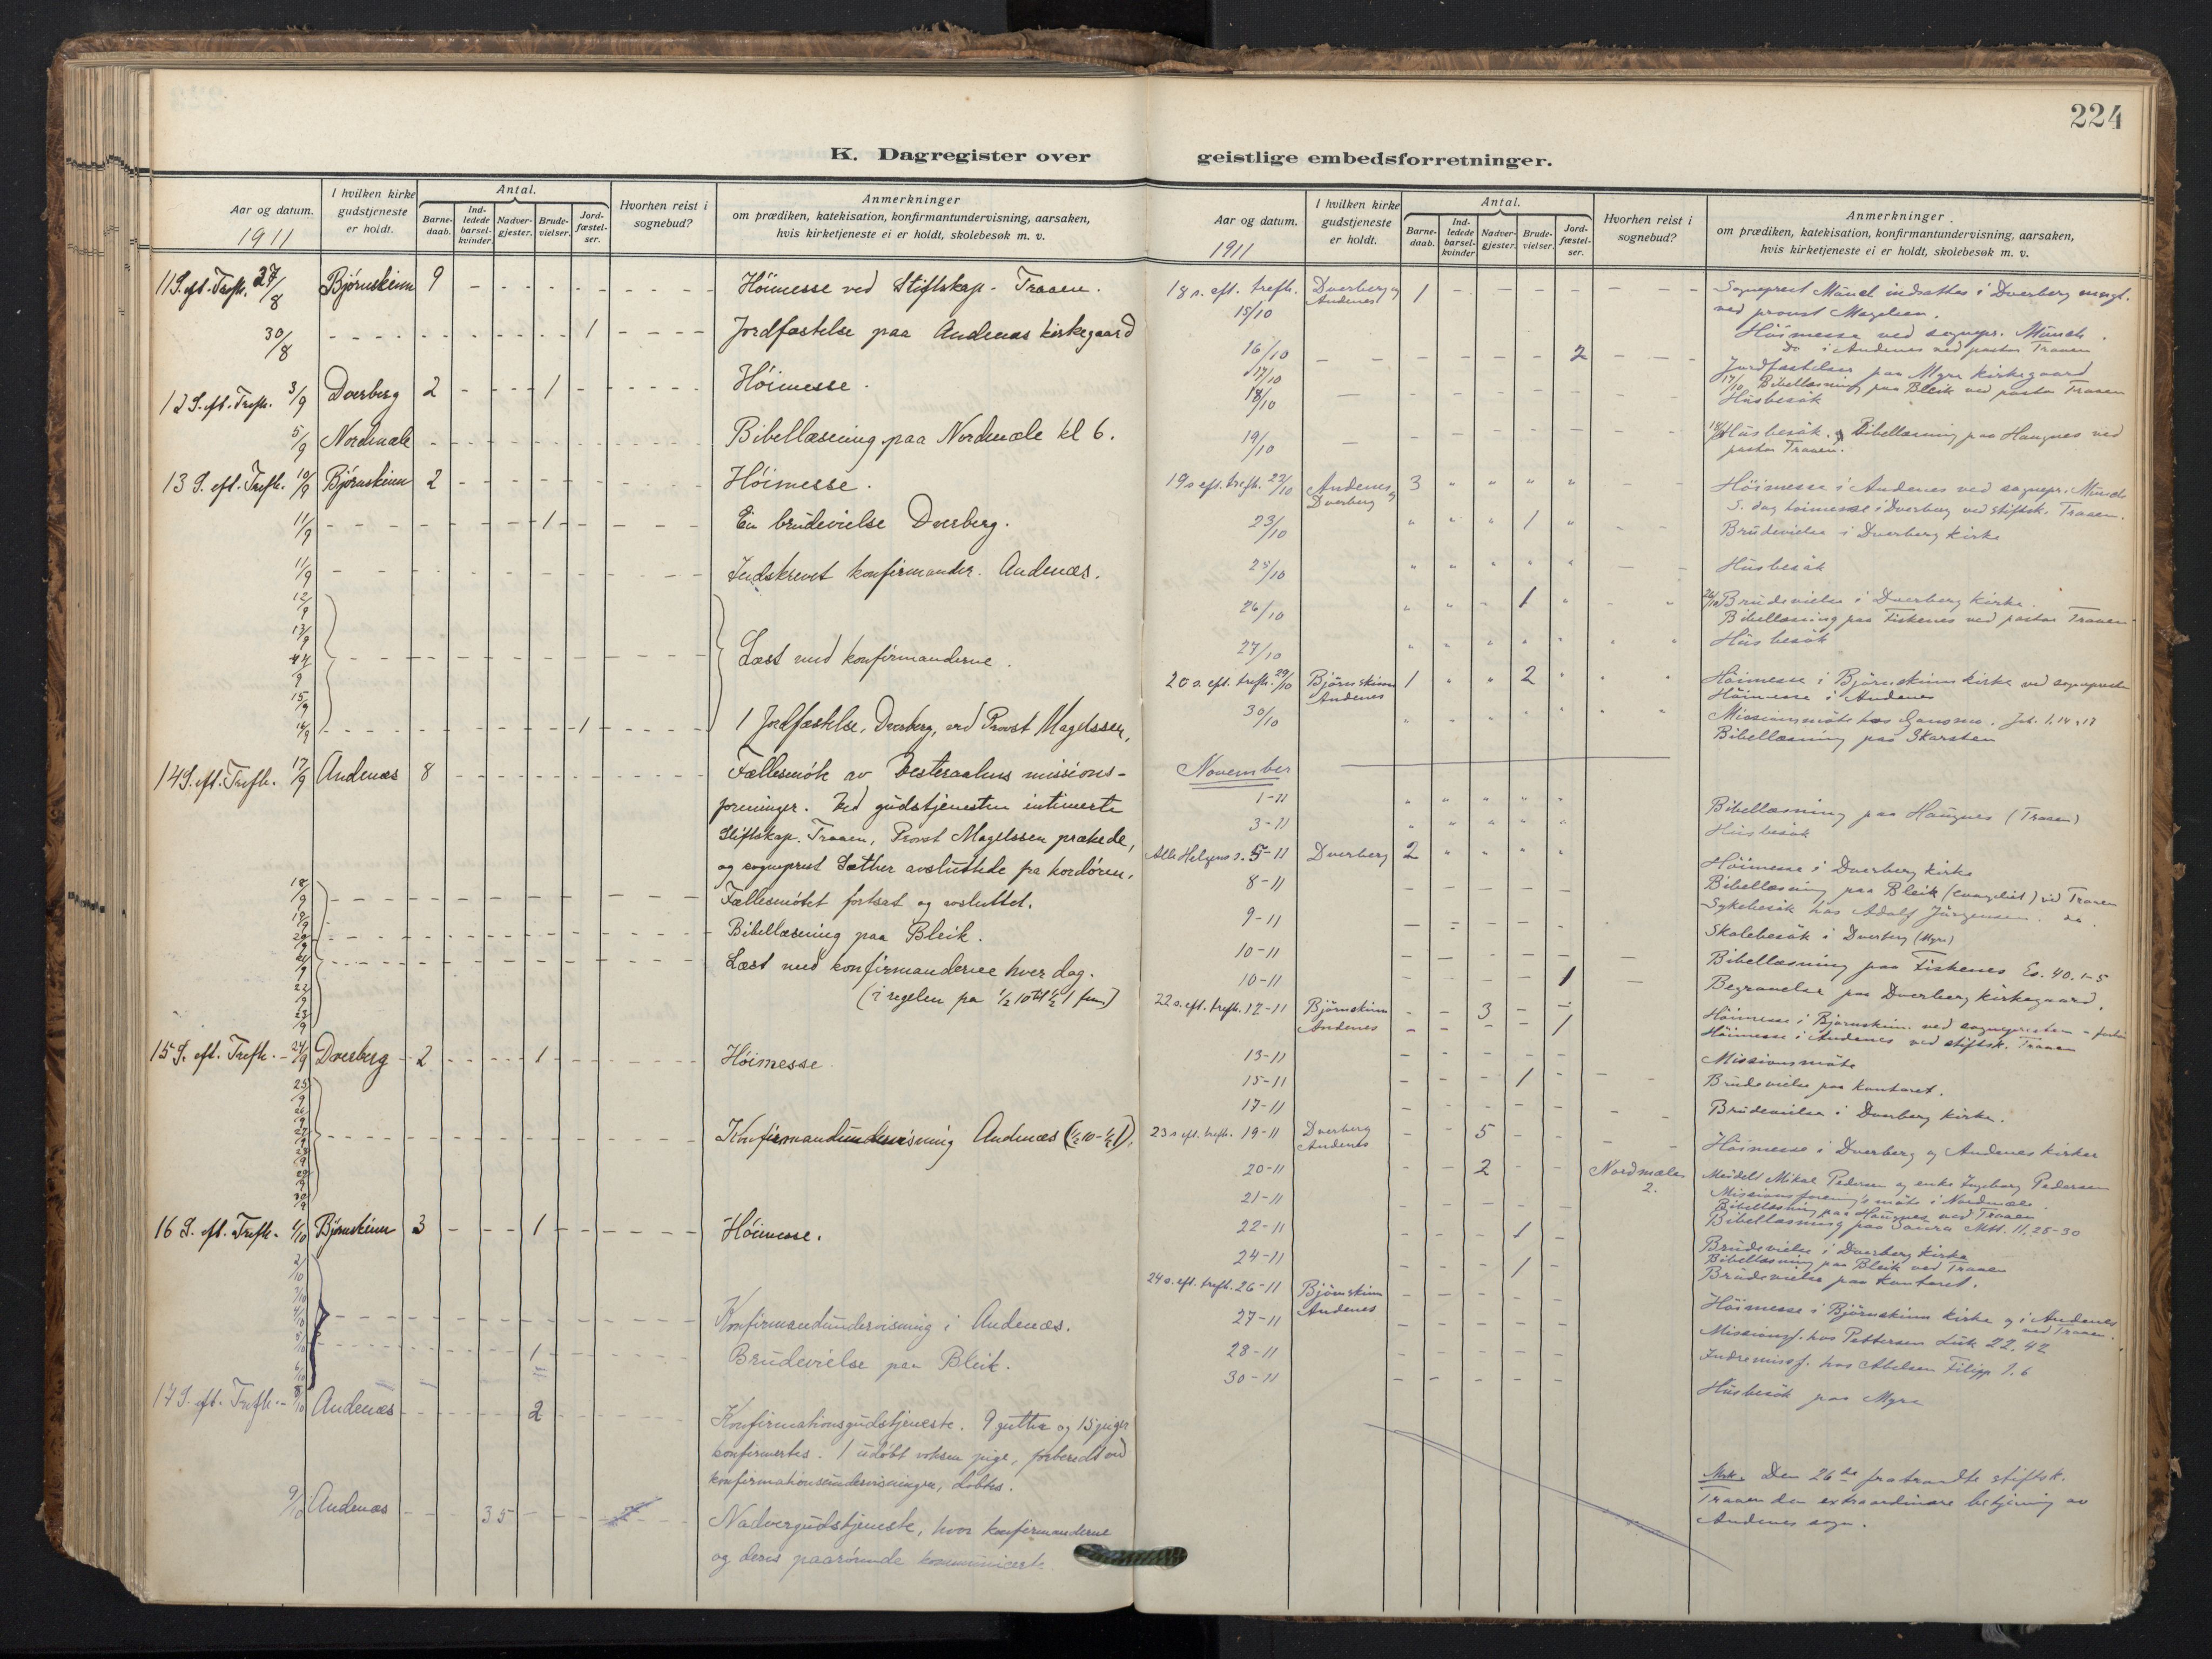 224
K. Dagregister over geistlige embedsforretninger.
Aar og datum.
1911
I hvilken kirke gudstjeneste er holdt.
Antal.
Barne-daab.
Ind-ledede barsel-kvinder
Nadver-gjester.
Brude-vielser.
Jord-fæstel-ser.
Hvorhen reist i sognebud?
Anmerkninger
om prædiken, katekisation, konfirmantundervisning, aarsaken,
hvis kirketjeneste ei er holdt, skolebesøk m. v.
11 S. eft. Trefh. 27/8 Bjørnskinn 9 Høimesse ved Stiftskap. Traaen.
30/8 1 Jordfæstelse paa Andenæs kirkegaard
12 S. eft. Trefh. 3/9 Dverberg 2 1 Høimesse.
5/9 Nordmæle Bibellæsning paa Nordmæle kl 6.
13 S. eft. Trefh. 10/9 Bjørnskinn 2 Høimesse.
11/9 1 En brudevielse Dverberg.
11/9 Indskrevet konfirmander. Andenæs.
12/9
13/9
14/9 Læst med konfirmanderne.
15/9
16/9 1 1 Jordfæstelse, Dverberg, ved Provst Magelssen,
14 S. eft. Trefh. 17/9 Andenæs 8 Fællesmøte av Vesteraalens missions-
foreninger. Ved gudstjenesten intimerte
Stiftskap. Traaen, Provst Magelssen prækede,
og sogneprest Sæther avsluttede fra kordøren.
18/9 Fællesmøtet fortsat og avsluttet.
19/9
20/9 Bibellæsning paa Bleik.
21/9 Læst med konfirmanderne hver dag.
22/9 (i regelen fra ½10 til ½1 fm)
23/9
15 S. eft. Trefh. 24/9 Dverberg 2 1 Høimesse
25/9
26/9
27/9 Konfirmandundervisning Andenæs (½10-½1).
28/9
29/9
30/9
16 S. eft. Trefh. 1/10 Bjørnskinn 3 1 Høimesse.
2/10
3/10
4/10 Konfirmandundervisning i Andenæs.
5/10 1 Brudevielse paa Bleik.
6/10
17 S. eft. Trefh. 8/10 Andenæs 2 Konfirmationsgudstjeneste. 9 gutter og 15 piger
konfirmertes. 1 udøbt voksen pige, forberedt ved
konfirmationsundervisningen, døbtes.
9/10 Andenæs 35 Nadvergudstjeneste, hvor konfirmanderne
og deres paarørende kommunicerte.
Aar og datum.
1911
I hvilken kirke gudstjeneste er holdt.
Antal.
Barne-daab.
Ind-ledede barsel-kvinder
Nadver-gjester.
Brude-vielser.
Jord-fæstel-ser.
Hvorhen reist i sognebud?
Anmerkninger.
om prædiken, katekisation, konfirmantundervisning, aarsaken,
hvis kirketjeneste ei er holdt, skolebesøk m. v.
18 s. eft. trefh. 15/10 Dverberg og Andenes 1 Sogneprest Münch indsattes i Dverberg
ved provst Magelsen.
Höimesse ved sognepr. Münch.
Do i Andenes ved pastor Traaen
16/10 2 Jordfæstelser paa Myre kirkegaard
17/10 17/10 Bibellæsning paa Bleik ved pastor Traaen
18/10 Husbesök
19/10 Husbesök. Bibellæsning paa Haugnes ved
pastor Traaen.
19 s eft. trefh. 22/10 Andenes og Dverberg 3 Höimesse i Andenes ved sognepr. Münch
S. dag höimesse i Dverberg ved stiftsk. Traaen.
23/10 1 Brudevielse i Dverberg kirke
25/10 Husbesök
26/10 1 26/10 Brudevielse i Dverberg kirke.
Bibellæsning paa Fiskenes ved pastor Traaen
27/10 Husbesök
20 s. eft. trefh. 29/10 Björnskinn Andenes 1 2 Höimesse i Björnskinns kirke ved sognepresten
Höimesse i Andenes
30/10 Missionsmöte hos Gansmo. Joh. 1.14,17
Bibellæsning paa Skarsten
November
1-11 Bibellæsning paa Haugnes (Traaen)
3-11 Husbesök
Alle Helgens s. 5-11 Dverberg 2 Höimesse i Dverberg kirke
8-11 Bibellæsning paa Bleik (evangeliet) ved Traaen
9-11 Sykebesök hos Adolf Jörgensen. do
10-11 Skolebesök i Dverberg (Myre)
Bibellæsning paa Fiskenes Es. 40. 1-5
10-11 1 Begravelse paa Dverberg kirkegaard.
22 s. eft. trefh. 12-11 Björnskinn Andenes 3 1 Höimesse i Björnskinn ved sognepresten
Höimesse i Andenes ved stiftsk. Traaen
13-11 Missionsmöte
15-11 1 Brudevielse paa kontoret.
17-11 Brudevielse i Dverberg kirke.
23 s eft. trefh. 19-11 Dverberg Andenes 5 Höimesse i Dverberg og Andenes kirker
20-11 2 Nordmæle 2. Mikal Pedersen og enke Ingeborg Pedersen
Missionsforening's möte i Nordmæle.
21-11 Bibellæsning paa Haugnes ved Traaen
Bibellæsning paa Saura Mtt. 11.28-30
22-11 1 Brudevielse i Dverberg kirke
Bibellæsning paa Bleik ved Traaen
24-11 1 Brudevielse paa kontoret.
24 s. eft. trefh. 26-11 Björnskinn Andenes Höimesse i Björnskinn kirke og i Andenes
ved Traaen.
27-11 Missionsf. hos Pettersen Luk 22.42
28-11 Indremissf. hos Abelsen Filipp 1.6
30-11 Husbesök paa Myre
Mrk. Den 26de fratraadte stiftsk.
Traaen den extraordinære betjening av
Andenes sogn.